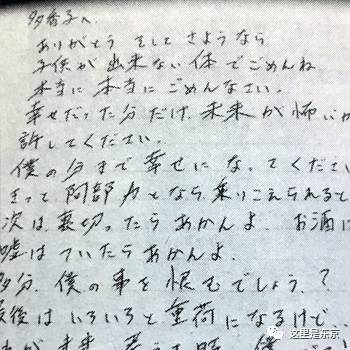 多香子へ
ありがとう そして さようなら
子供が出来ない体でごめんね
本当に本当にごめんなさい。
幸せだった分だけ、未来が怖いか
許してください。
僕の分まで幸せになってください
きっと阿部力となら乗りこえられると
次は、裏切ったらあかんよ お酒に
嘘はついたらあかんよ。
多分、僕の事を恨むでしょう?
最後はいろいろと重荷になるけど
未来
这里是东京